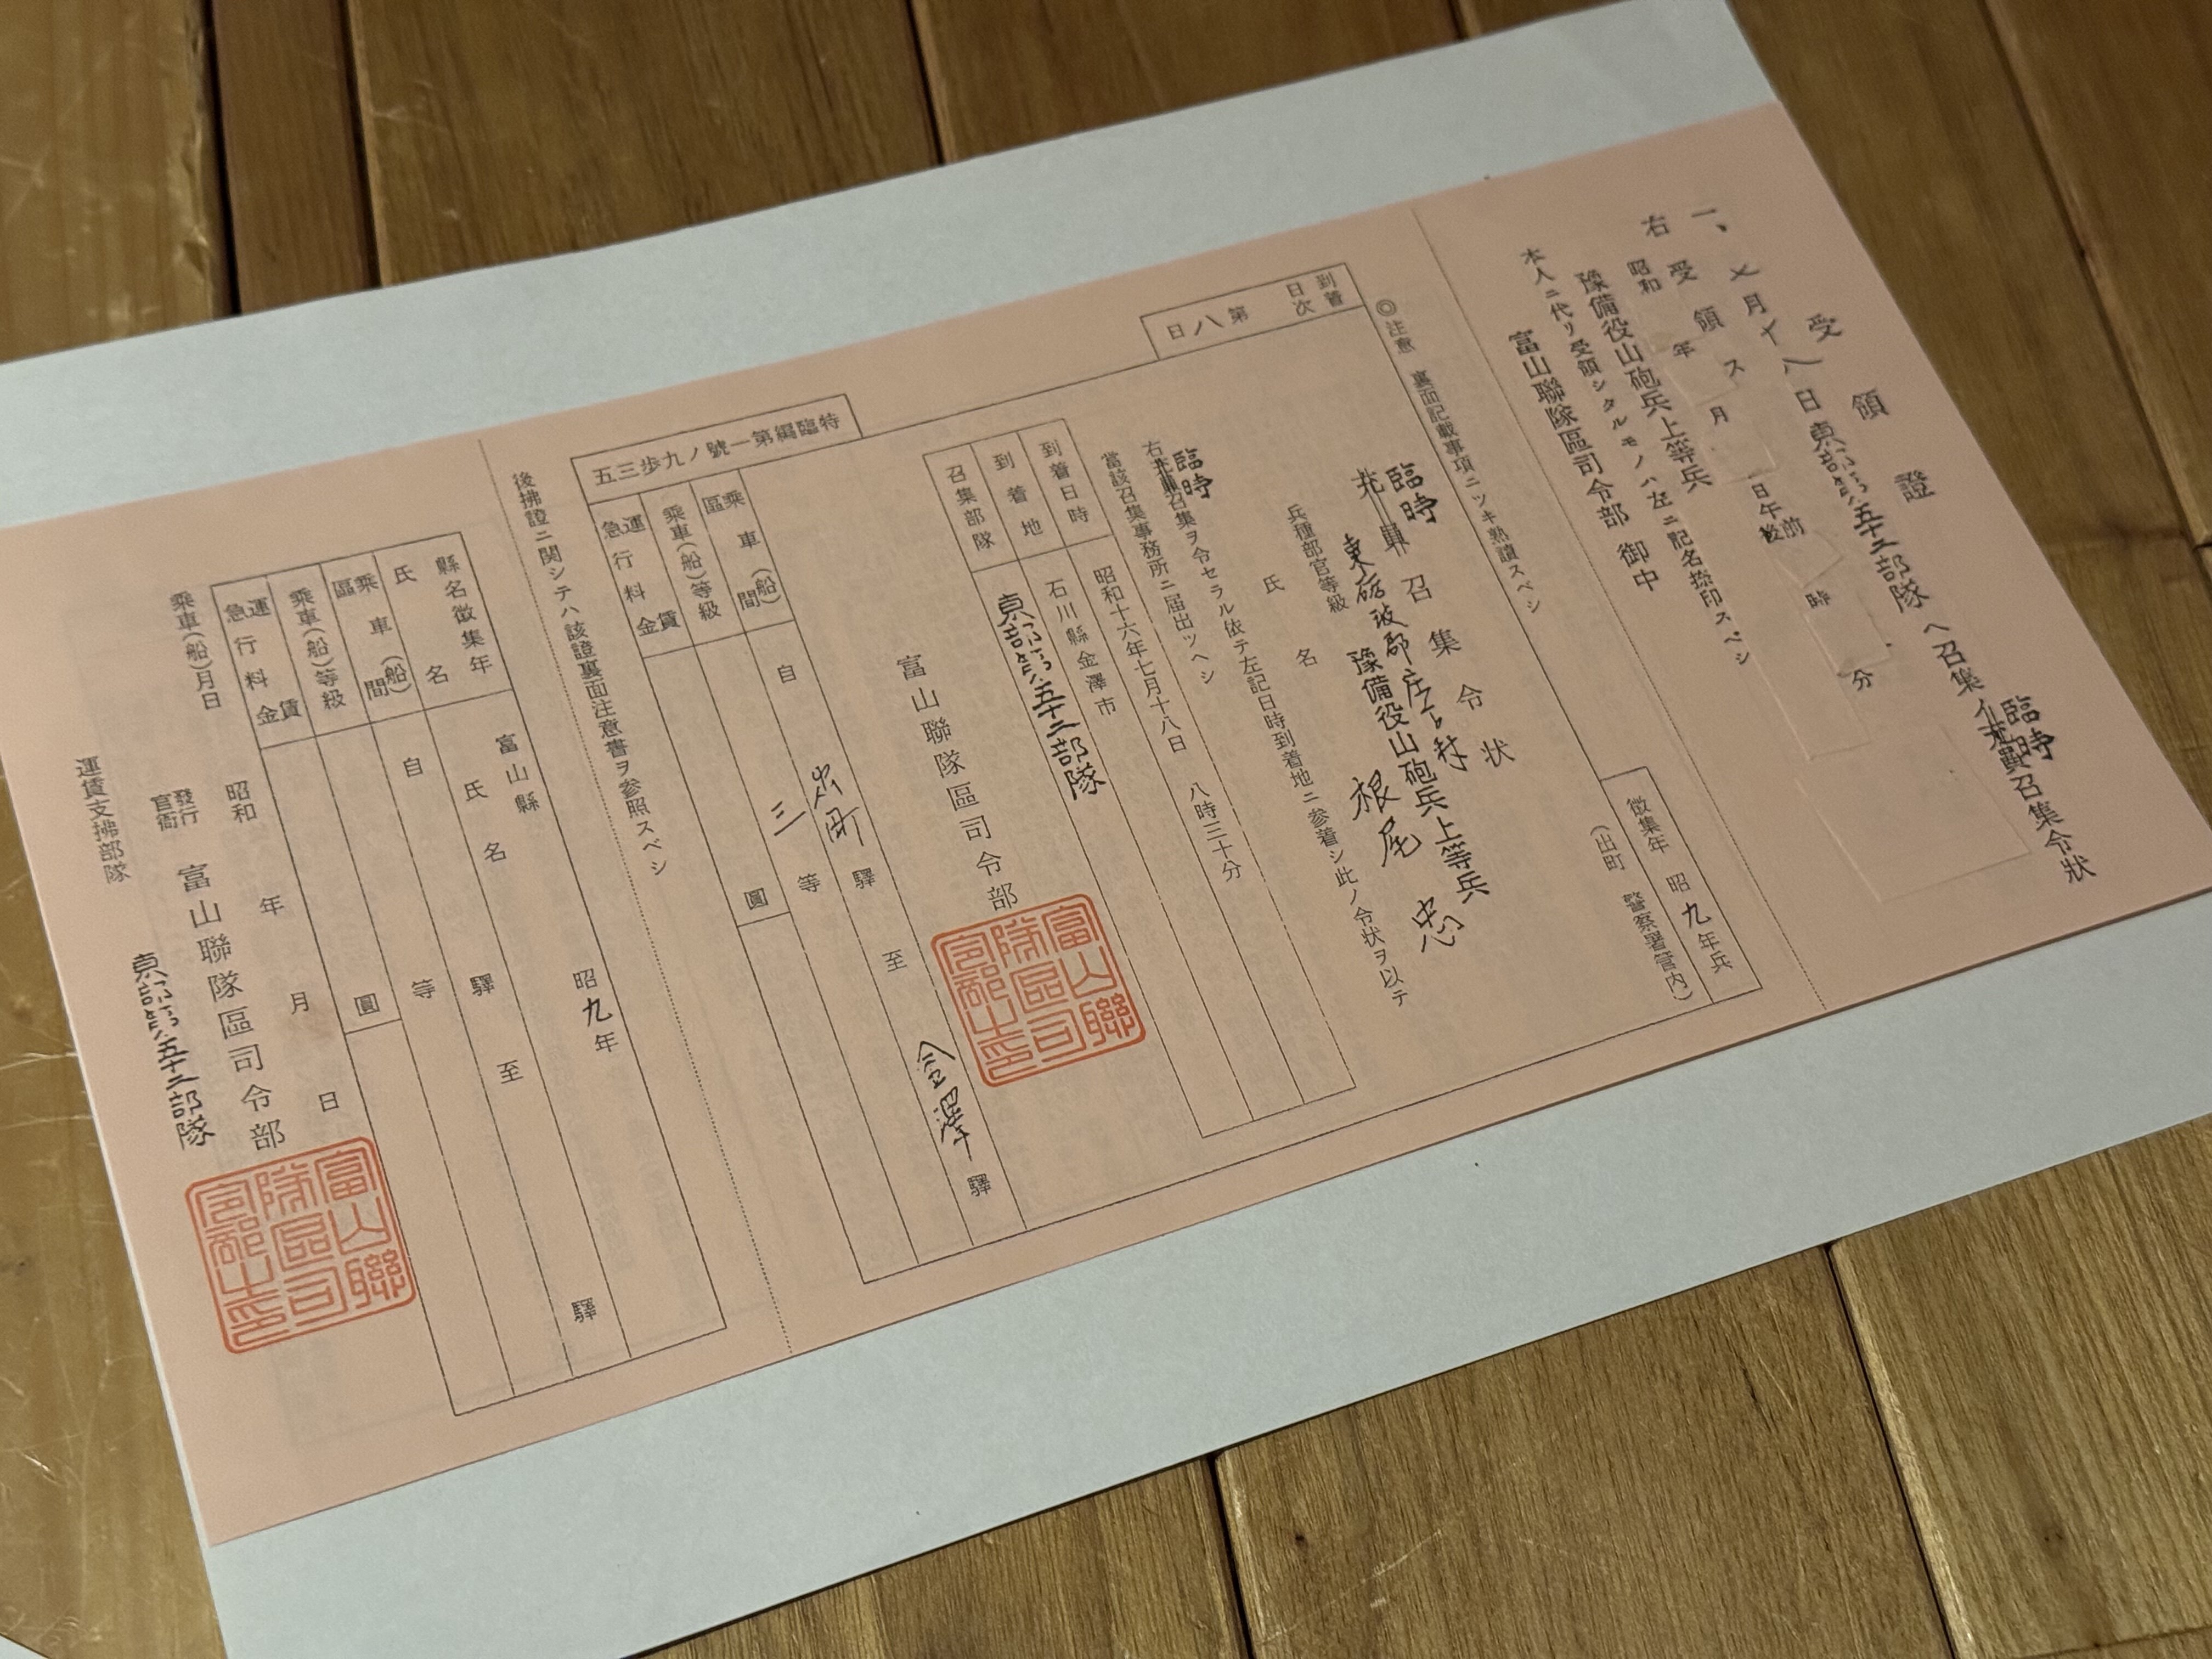 受領證
一、七月十八日東部第五十二部隊へ召集ノ臨時充員召集令状
右受領ス
昭和 年 月 日午前後 時 分
豫備役山砲兵上等兵
本人ニ代リ受領シタルモノハ左ニ記名捺印スベシ
富山聯隊區司令部 御中
◎注意 裏面記載事項ニツキ熟讀スベシ
到着日次 第八日
徴集年 昭九年兵
(出町 警察署管内)
臨時充員召集令状
東砺波郡庄下村
兵種部官等級 豫備役山砲兵上等兵
氏名 根尾 忠
右臨時充員召集ヲ令セラル依テ左記日時到着地ニ参着シ此ノ令状ヲ以テ
當該召集事務所ニ届出ツヘシ
到着日時 昭和十六年七月十八日 八時三十分
到着地 石川縣金澤市
召集部隊 東部第五十二部隊
富山聯隊區司令部
富山聯隊區司令部之印
特臨編第一號ノ九歩三五
乗車(船)區間 自 出町 驛 至 金澤 驛
乗車(船)等級 三 等
運賃急行料金 圓
後拂證ニ関シテハ該證裏面注意書ヲ参照スベシ
縣名徴集年 富山縣 昭九年
氏名 氏名
乗車(船)區間 自 驛 至 驛
乗車(船)等級 等
運賃急行料金 圓
乗車(船)月日 昭和 年 月 日
發行官衙 富山聯隊區司令部
富山聯隊區司令部之印
運賃支拂部隊 東部第五十二部隊